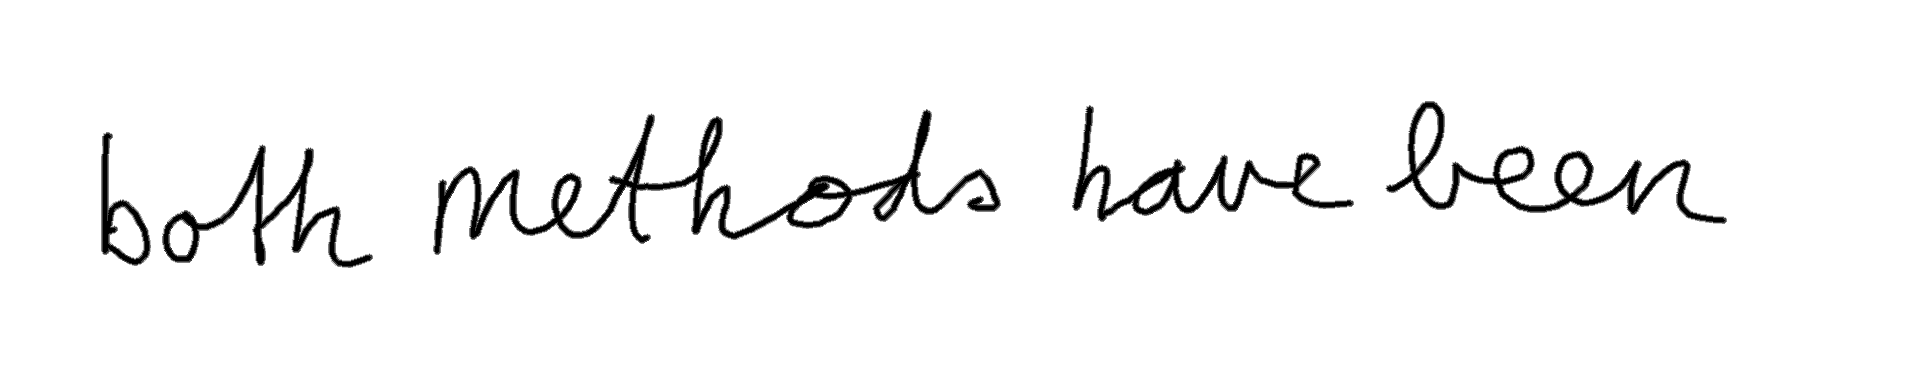 both methods have been